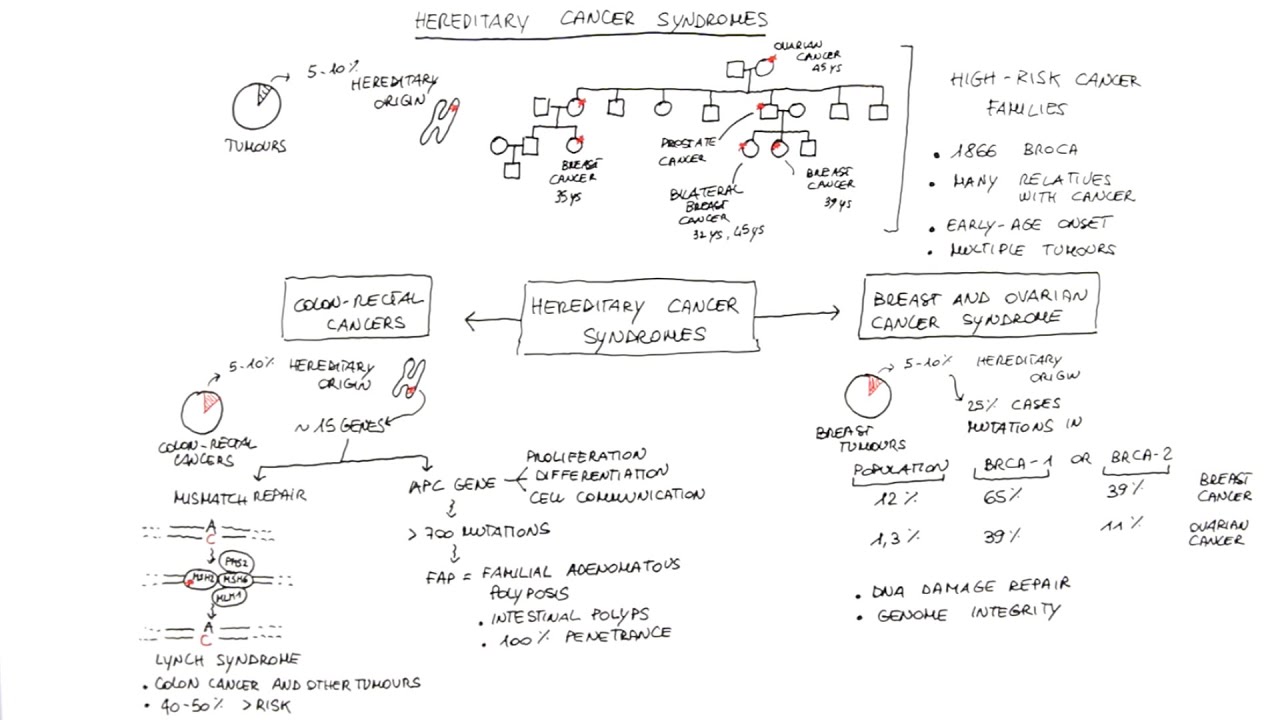 HEREDITARY CANCER SYNDROMES
5-10%
HEREDITARY
ORIGIN
TUMOURS
OVARIAN
CANCER
45 ys
BREAST
CANCER
35 ys
PROSTATE
CANCER
BILATERAL
BREAST
CANCER
32 ys, 45 ys
BREAST
CANCER
39 ys
HIGH-RISK CANCER
FAMILIES
• 1866 BROCA
• MANY RELATIVES
WITH CANCER
• EARLY-AGE ONSET
• MULTIPLE TUMOURS
COLON-RECTAL
CANCERS
HEREDITARY CANCER
SYNDROMES
BREAST AND OVARIAN
CANCER SYNDROME
5-10% HEREDITARY
ORIGIN
~15 GENES
COLON-RECTAL
CANCERS
MISMATCH REPAIR
A
C
PMS2
MSH2
MSH6
MLH1
A
C
LYNCH SYNDROME
• COLON CANCER AND OTHER TUMOURS
• 40-50% > RISK
APC GENE
PROLIFERATION
DIFFERENTIATION
CELL COMMUNICATION
> 700 MUTATIONS
FAP = FAMILIAL ADENOMATOUS
POLYPOSIS
• INTESTINAL POLYPS
• 100% PENETRANCE
5-10% HEREDITARY
ORIGIN
25% CASES
MUTATIONS IN
BREAST
TUMOURS
POPULATION BRCA-1 OR BRCA-2
12% 65% 39% BREAST
CANCER
1,3% 39% 11% OVARIAN
CANCER
• DNA DAMAGE REPAIR
• GENOME INTEGRITY